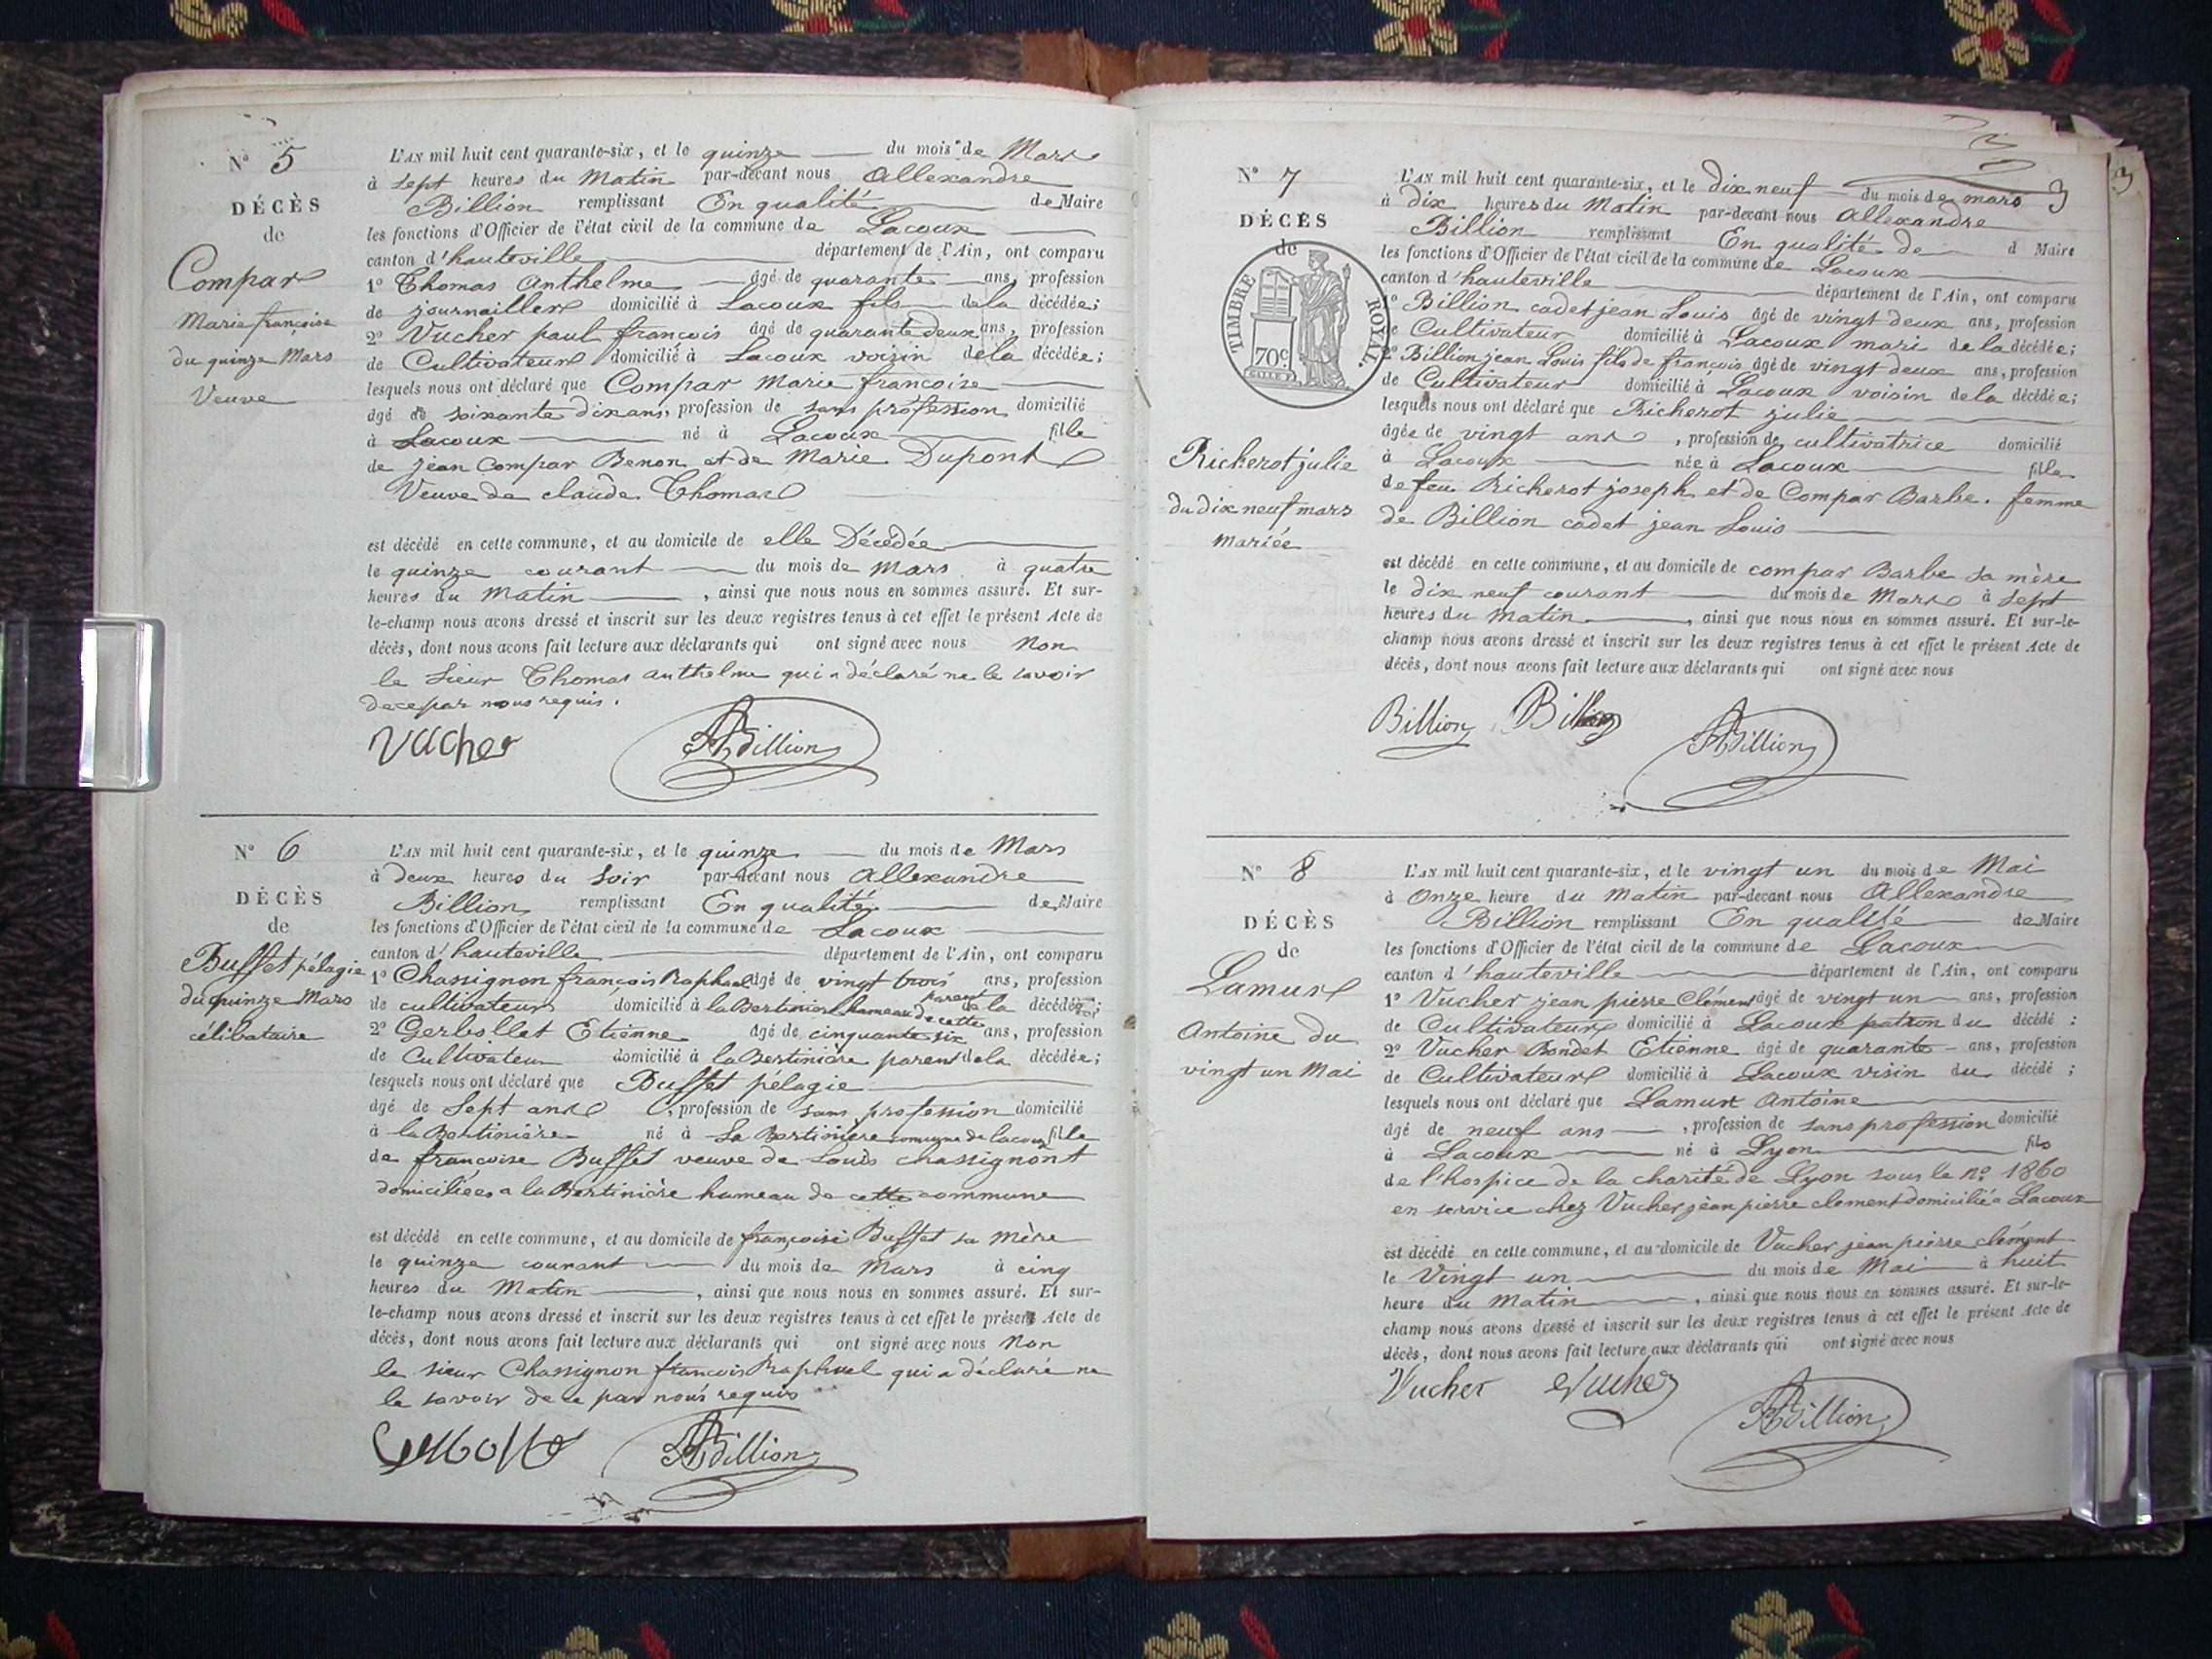 N° 5
DÉCÈS
de
Compar
Marie françoise
du quinze Mars
Veuve
L'AN mil huit cent quarante-six, et le quinze du mois de Mars
à sept heures du Matin par-devant nous Allexandre
Billion remplissant En qualité de Maire
les fonctions d'Officier de l'état civil de la commune de Lacoux
canton d'hauteville département de l'Ain, ont comparu
1° Thomas Anthelme âgé de quarante ans, profession
de journaillier domicilié à Lacoux fils de la décédée;
2° Vucher paul françois âgé de quarante deux ans, profession
de Cultivateur domicilié à Lacoux voisin de la décédée;
lesquels nous ont déclaré que Compar Marie françoise
âgé de soixante dix ans, profession de sans profession domicilié
à Lacoux né à Lacoux fille
de jean Compar Benon et de Marie Dupont
Veuve de claude Thomas
est décédé en cette commune, et au domicile de elle Décédée
le quinze courant du mois de Mars à quatre
heures du Matin, ainsi que nous nous en sommes assuré. Et sur-
le-champ nous avons dressé et inscrit sur les deux registres tenus à cet effet le présent Acte de
décès, dont nous avons fait lecture aux déclarants qui ont signé avec nous Non
le sieur Thomas anthelme qui a déclaré ne le savoir
de ce par nous requis.
Vucher ABillion
N° 6
DÉCÈS
de
Buffet pélagie
du quinze Mars
célibataire
L'AN mil huit cent quarante-six, et le quinze du mois de Mars
à deux heures du Soir par-devant nous Allexandre
Billion remplissant En qualité de Maire
les fonctions d'Officier de l'état civil de la commune de Lacoux
canton d'hauteville département de l'Ain, ont comparu
1° Chassignon françois Raphael âgé de vingt trois ans, profession
de cultivateur domicilié à la Bertinière hameau de cette parent de la décédée;
2° Gerbollet Etienne âgé de cinquante six ans, profession
de Cultivateur domicilié à la Bertinière parent de la décédée;
lesquels nous ont déclaré que Buffet pélagie
âgé de Sept ans, profession de sans profession domicilié
à la Bertinière né à La Bertinière commune de lacoux fille
de françoise Buffet veuve de Louis chassignont
domiciliées a la Bertinière hameau de cette commune
est décédé en cette commune, et au domicile de françoise Buffet sa Mère
le quinze courant du mois de Mars à cinq
heures du Matin, ainsi que nous nous en sommes assuré. Et sur-
le-champ nous avons dressé et inscrit sur les deux registres tenus à cet effet le présent Acte de
décès, dont nous avons fait lecture aux déclarants qui ont signé avec nous Non
le sieur Chassignon françois Raphael qui a déclaré ne
le savoir de ce par nous requis
ABillion
3
3
N° 7
DÉCÈS
de
TIMBRE ROYAL.
70c.
Richerot julie
du dix neuf mars
mariée
L'AN mil huit cent quarante-six, et le dix neuf du mois de mars
à dix heures du Matin par-devant nous Allexandre
Billion remplissant En qualité de d Maire
les fonctions d'Officier de l'état civil de la commune de Lacoux
canton d'hauteville département de l'Ain, ont comparu
1° Billion cadet jean Louis âgé de vingt deux ans, profession
de Cultivateur domicilié à Lacoux mari de la décédée;
2° Billion jean Louis fils de françois âgé de vingt deux ans, profession
de Cultivateur domicilié à Lacoux voisin de la décédée;
lesquels nous ont déclaré que Richerot julie
âgée de vingt ans, profession de cultivatrice domicilié
à Lacoux née à Lacoux fille
de feu Richerot joseph et de Compar Barbe. femme
de Billion cadet jean Louis
est décédé en cette commune, et au domicile de compar Barbe sa mère
le dix neuf courant du mois de Mars à sept
heures du Matin, ainsi que nous nous en sommes assuré. Et sur-le-
champ nous avons dressé et inscrit sur les deux registres tenus à cet effet le présent Acte de
décès, dont nous avons fait lecture aux déclarants qui ont signé avec nous
Billion Billion ABillion
N° 8
DÉCÈS
de
Lamure
Antoine du
vingt un Mai
L'AN mil huit cent quarante-six, et le vingt un du mois de Mai
à Onze heure du Matin par-devant nous Allexandre
Billion remplissant En qualité de Maire
les fonctions d'Officier de l'état civil de la commune de Lacoux
canton d'hauteville département de l'Ain, ont comparu
1° Vucher jean pierre Clément âgé de vingt un ans, profession
de Cultivateur domicilié à Lacoux patron du décédé:
2° Vucher Bondet Etienne âgé de quarante ans, profession
de Cultivateur domicilié à Lacoux visin du décédé;
lesquels nous ont déclaré que Lamure Antoine
âgé de neuf ans, profession de sans profession domicilié
à Lacoux né à Lyon fils
de l'hospice de la charité de Lyon sous le n° 1860
en service chez Vucher jean pierre clement domicilié a Lacoux
est décédé en cette commune, et au domicile de Vucher jean pierre clément
le Vingt un du mois de Mai à huit
heure du Matin, ainsi que nous nous en sommes assuré. Et sur-le-
champ nous avons dressé et inscrit sur les deux registres tenus à cet effet le présent Acte de
décès, dont nous avons fait lecture aux déclarants qui ont signé avec nous
Vucher eVucher ABillion